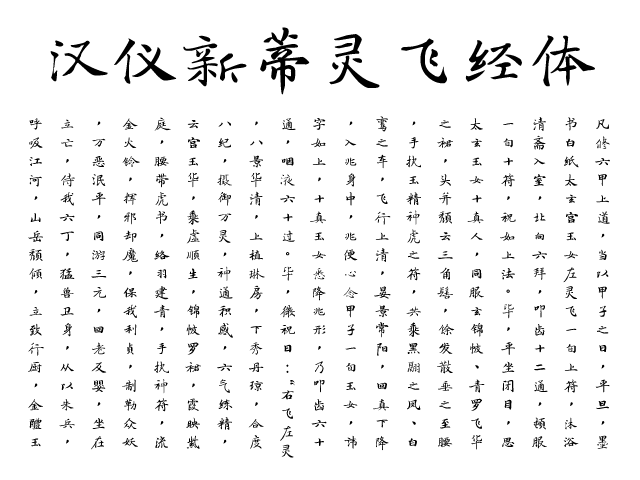 汉仪新蒂灵飞经体
凡修六甲上道，当以甲子之日，平旦，墨
书白纸太玄宫玉女左灵飞一旬上符，沐浴
清斋入室，北向六拜，叩齿十二通，顿服
一旬十符，祝如上法。毕，平坐闭目，思
太玄玉女十真人，同服玄锦帔、青罗飞华
之裙，头并颓云三角髻，馀发散垂之至腰
，手执玉精神虎之符，共乘黑翮之凤、白
鸾之车，飞行上清，晏景常阳，回真下降
，入兆身中，兆便心念甲子一旬玉女，讳
字如上，十真玉女悉降兆形，乃叩齿六十
通，咽液六十过。毕，微祝曰：“右飞左灵
，八景华清，上植琳房，下秀丹琼，合度
八纪，摄御万灵，神通积感，六气练精，
云宫玉华，乘虚顺生，锦帔罗裙，霞映紫
庭，腰带虎书，络羽建青，手执神符，流
金火铃，挥邪却魔，保我利贞，制勒众妖
，万恶泯平，同游三元，回老及婴，坐在
立亡，侍我六丁，猛兽卫身，从以朱兵，
呼吸江河，山岳颓倾，立致行厨，金醴玉